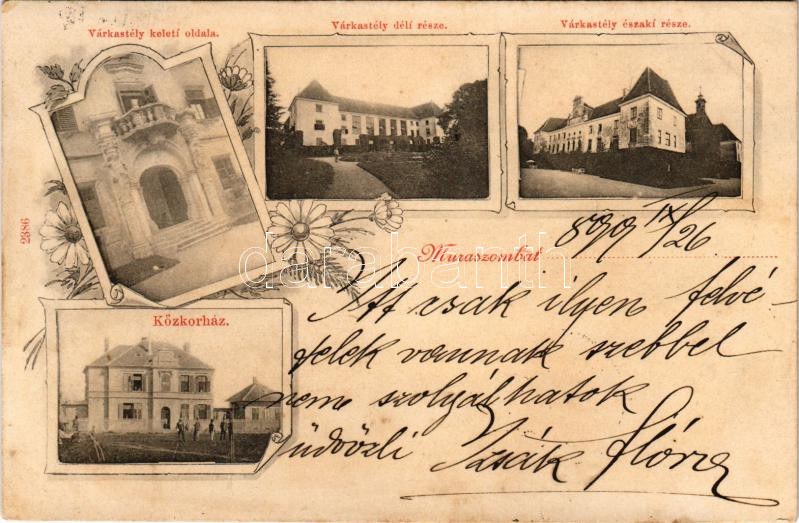 Várkastély keleti oldala.
Várkastély déli része.
Várkastély északi része.
2386
Muraszombat 899 IX/26
Itt csak ilyen felvé-
telek vannak szebbel
nem szolgálhatok
üdvözli Izsák Flóra
Közkorház.
darabanth